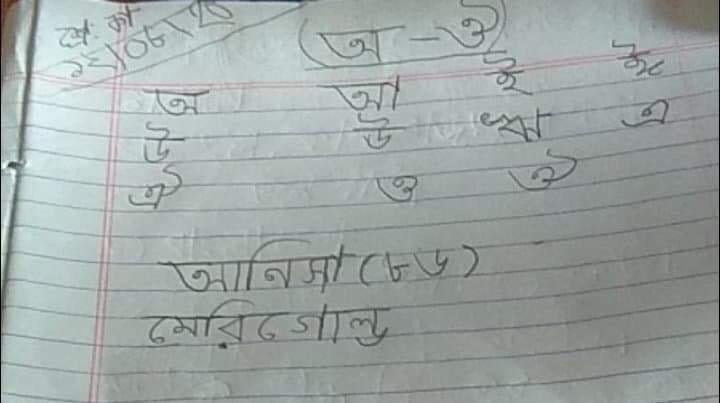 শ্রে. কা
(অ - ঔ)
অ আ ই ঈ
উ ঊ ঋ এ
ঐ ও ঔ
আনিসা (৮৬)
মেরিগোল্ড